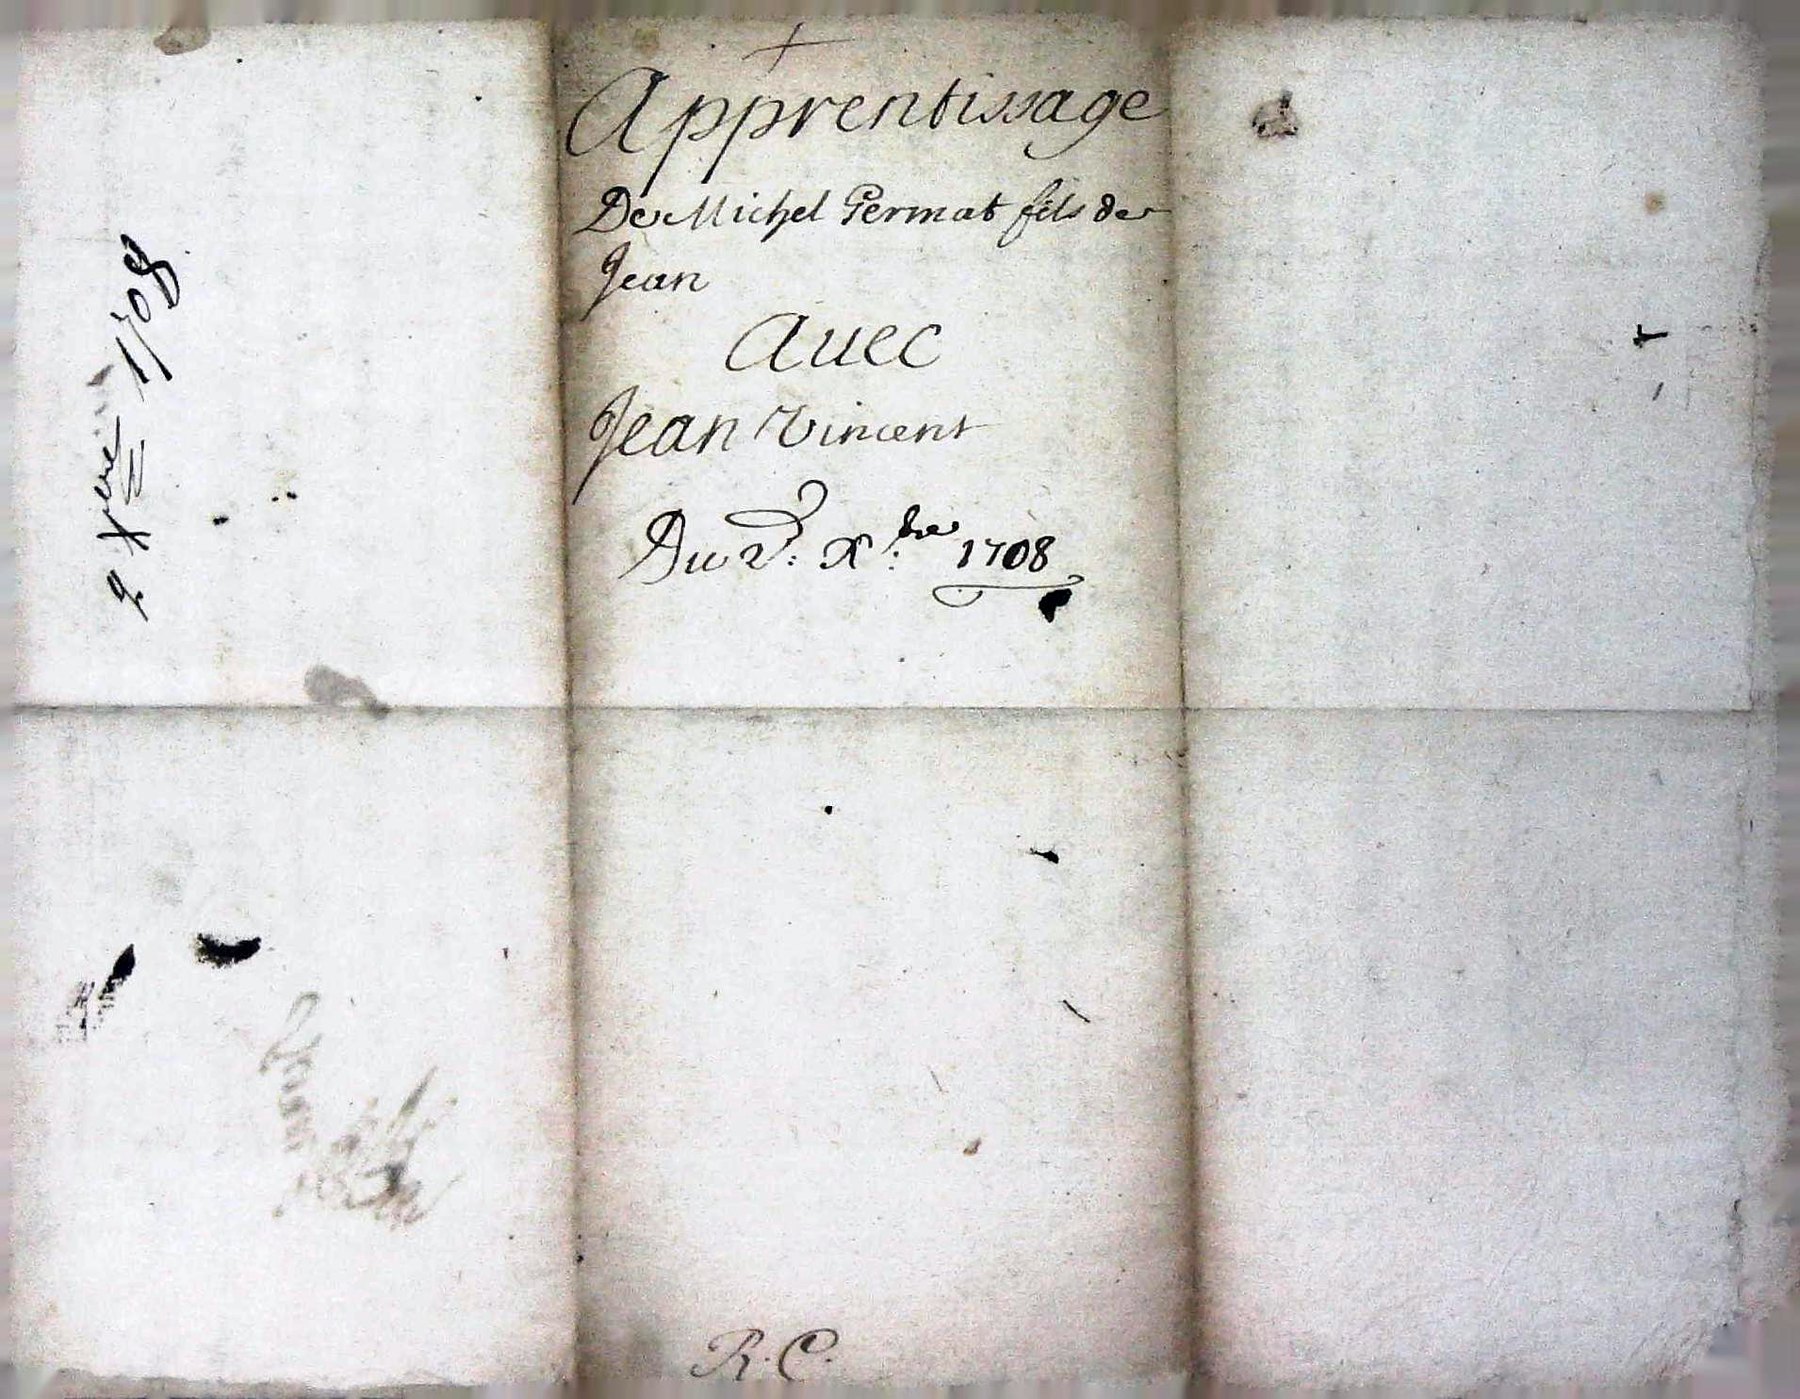 Apprentissage
De Michel Permat fils de
Jean
Auec
Jean Vincent
Du 2e: X:bre 1708
R. C.
2 Xbre 1708